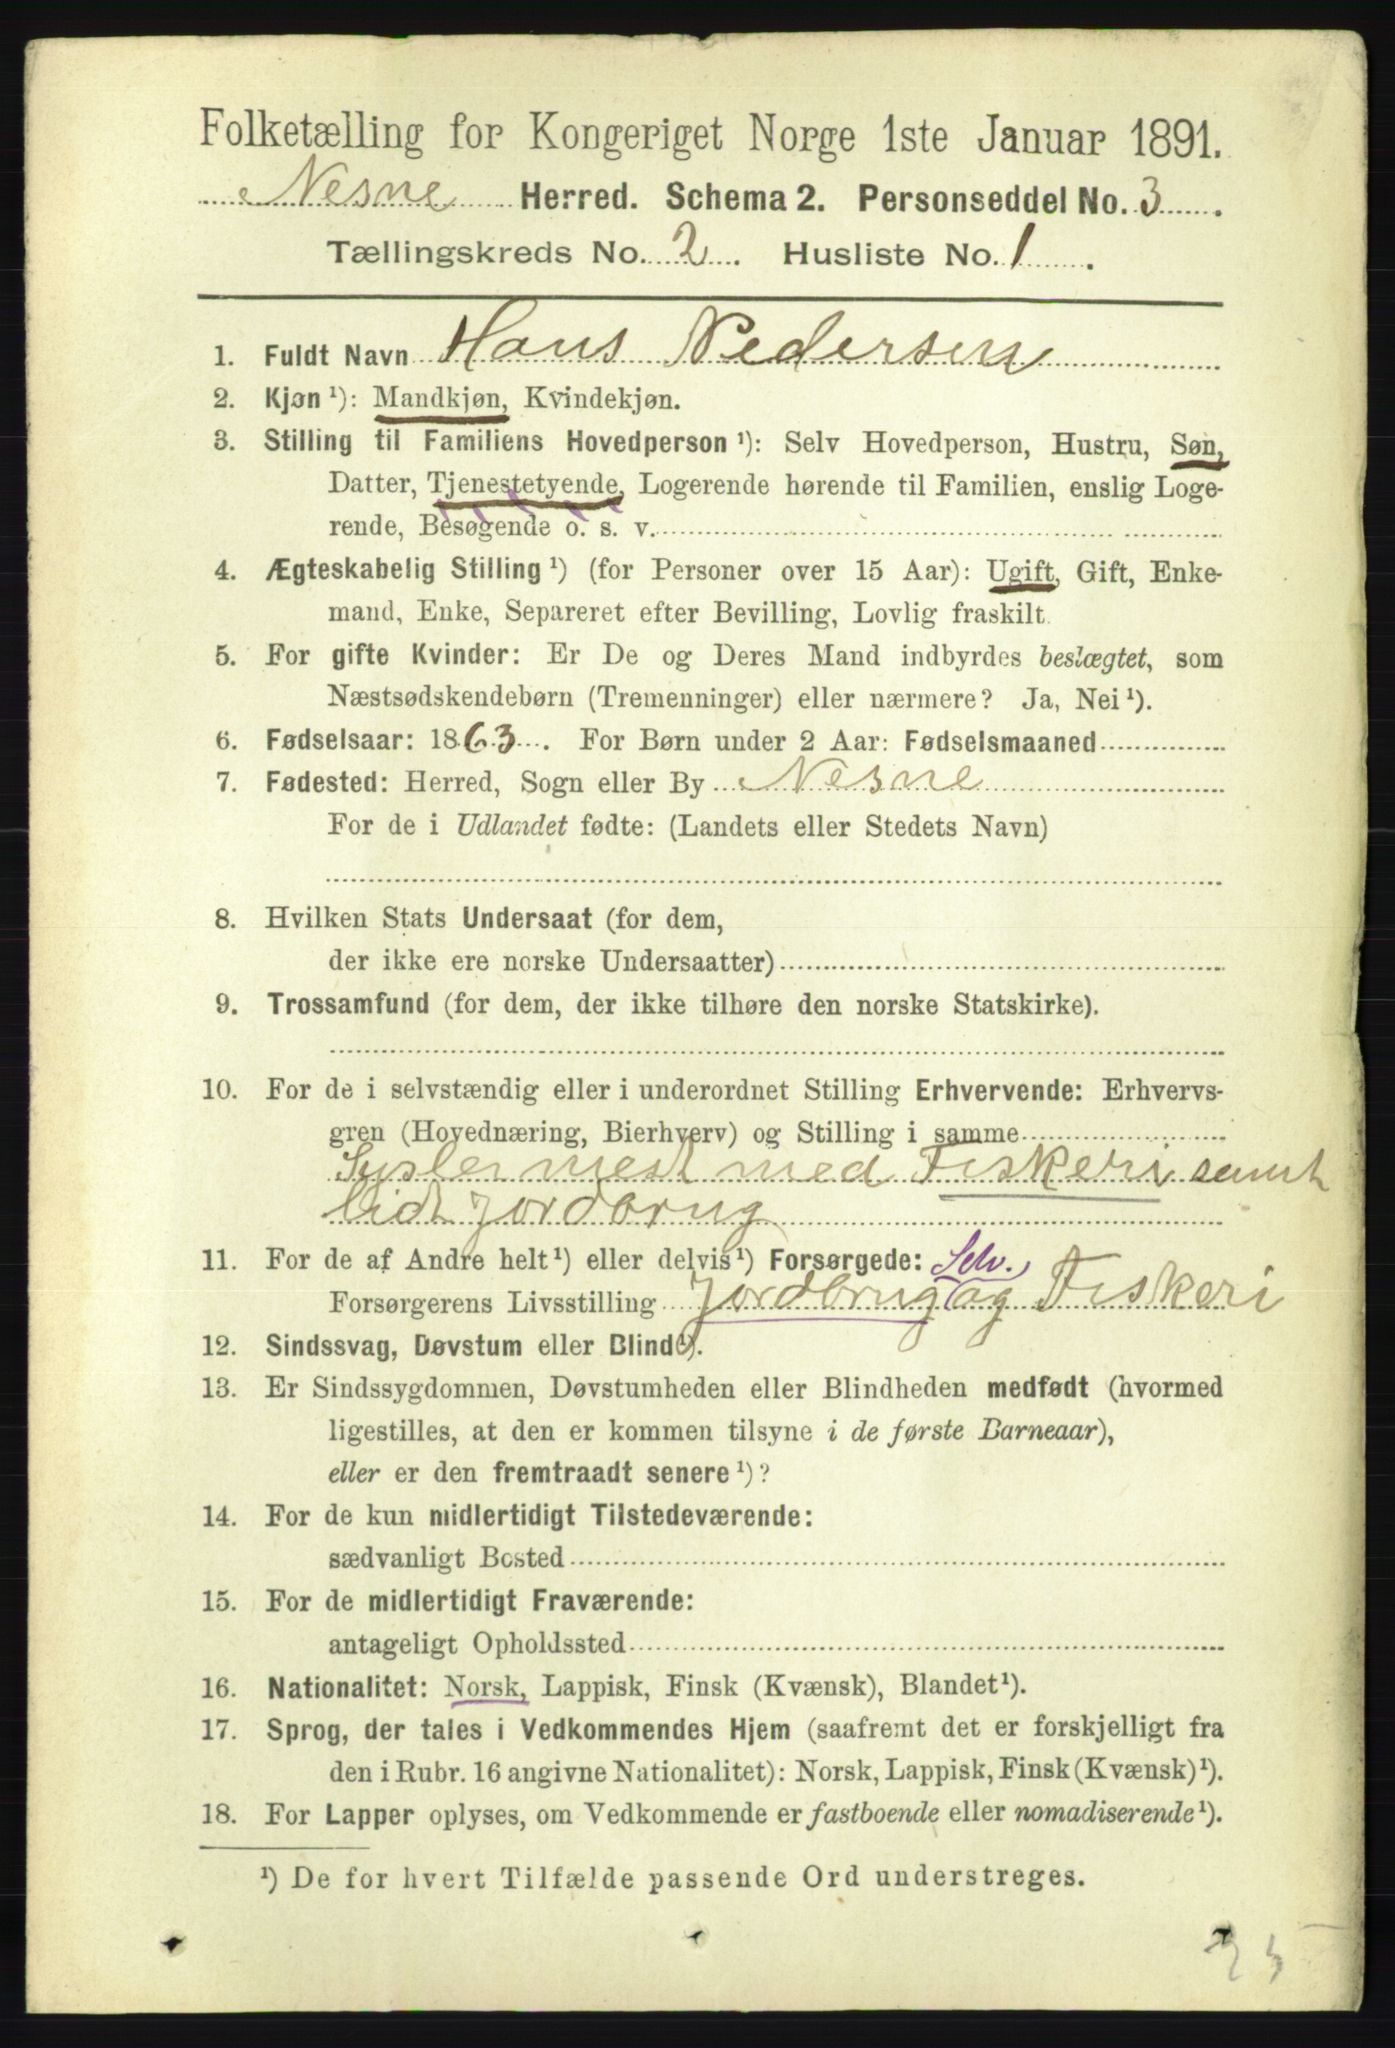 Folketælling for Kongeriget Norge 1ste Januar 1891.
Nesne Herred. Schema 2. Personseddel No. 3.
Tællingskreds No. 2. Husliste No. 1.
1. Fuldt Navn Hans Pedersen
2. Kjøn ¹): Mandkjøn, Kvindekjøn.
3. Stilling til Familiens Hovedperson ¹): Selv Hovedperson, Hustru, Søn,
Datter, Tjenestetyende, Logerende hørende til Familien, enslig Loge-
rende, Besøgende o. s. v.
4. Ægteskabelig Stilling ¹) (for Personer over 15 Aar): Ugift, Gift, Enke-
mand, Enke, Separeret efter Bevilling, Lovlig fraskilt.
5. For gifte Kvinder: Er De og Deres Mand indbyrdes beslægtet, som
Næstsødskendebørn (Tremenninger) eller nærmere? Ja, Nei ¹).
6. Fødselsaar: 1863. For Børn under 2 Aar: Fødselsmaaned
7. Fødested: Herred, Sogn eller By Nesne
For de i Udlandet fødte: (Landets eller Stedets Navn)
8. Hvilken Stats Undersaat (for dem,
der ikke ere norske Undersaatter)
9. Trossamfund (for dem, der ikke tilhøre den norske Statskirke).
10. For de i selvstændig eller i underordnet Stilling Erhvervende: Erhvervs-
gren (Hovednæring, Bierhverv) og Stilling i samme
Sysler mest med Fiskeri samt
lidt Jordbrug
11. For de af Andre helt ¹) eller delvis ¹) Forsørgede: Selv.
Forsørgerens Livsstilling Jordbrug og Fiskeri
12. Sindssvag, Døvstum eller Blind ¹).
13. Er Sindssygdommen, Døvstumheden eller Blindheden medfødt (hvormed
ligestilles, at den er kommen tilsyne i de første Barneaar),
eller er den fremtraadt senere ¹)?
14. For de kun midlertidigt Tilstedeværende:
sædvanligt Bosted
15. For de midlertidigt Fraværende:
antageligt Opholdssted
16. Nationalitet: Norsk, Lappisk, Finsk (Kvænsk), Blandet ¹).
17. Sprog, der tales i Vedkommendes Hjem (saafremt det er forskjelligt fra
den i Rubr. 16 angivne Nationalitet): Norsk, Lappisk, Finsk (Kvænsk) ¹).
18. For Lapper oplyses, om Vedkommende er fastboende eller nomadiserende ¹).
¹) De for hvert Tilfælde passende Ord understreges.